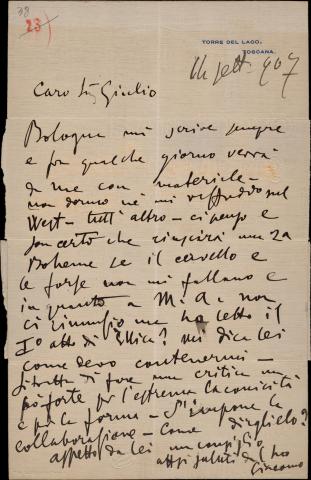 38
23
TORRE DEL LAGO,
TOSCANA.
14 sett 907
Caro Sig Giulio
Bologna mi scrive sempre
e fra qualche giorno verrà
da me con materiale -
non dormo nè mi raffreddo sul
West - tutt'altro - ci penso e
son certo che riuscirà una 2a
Bohème se il cervello e
le forze non mi fallano e
in quanto a M. A. non
ci rinunzio ma ha letto il
Iº atto di Illica? mi dica lei
come devo contenermi -
si tratta di fare una critica un
pò forte per l'estrema laconicità
e per la forma - S'impone la
collaborazione - Come dirglielo?
aspetto da lei un consiglio
affi saluti dal suo
Giacomo